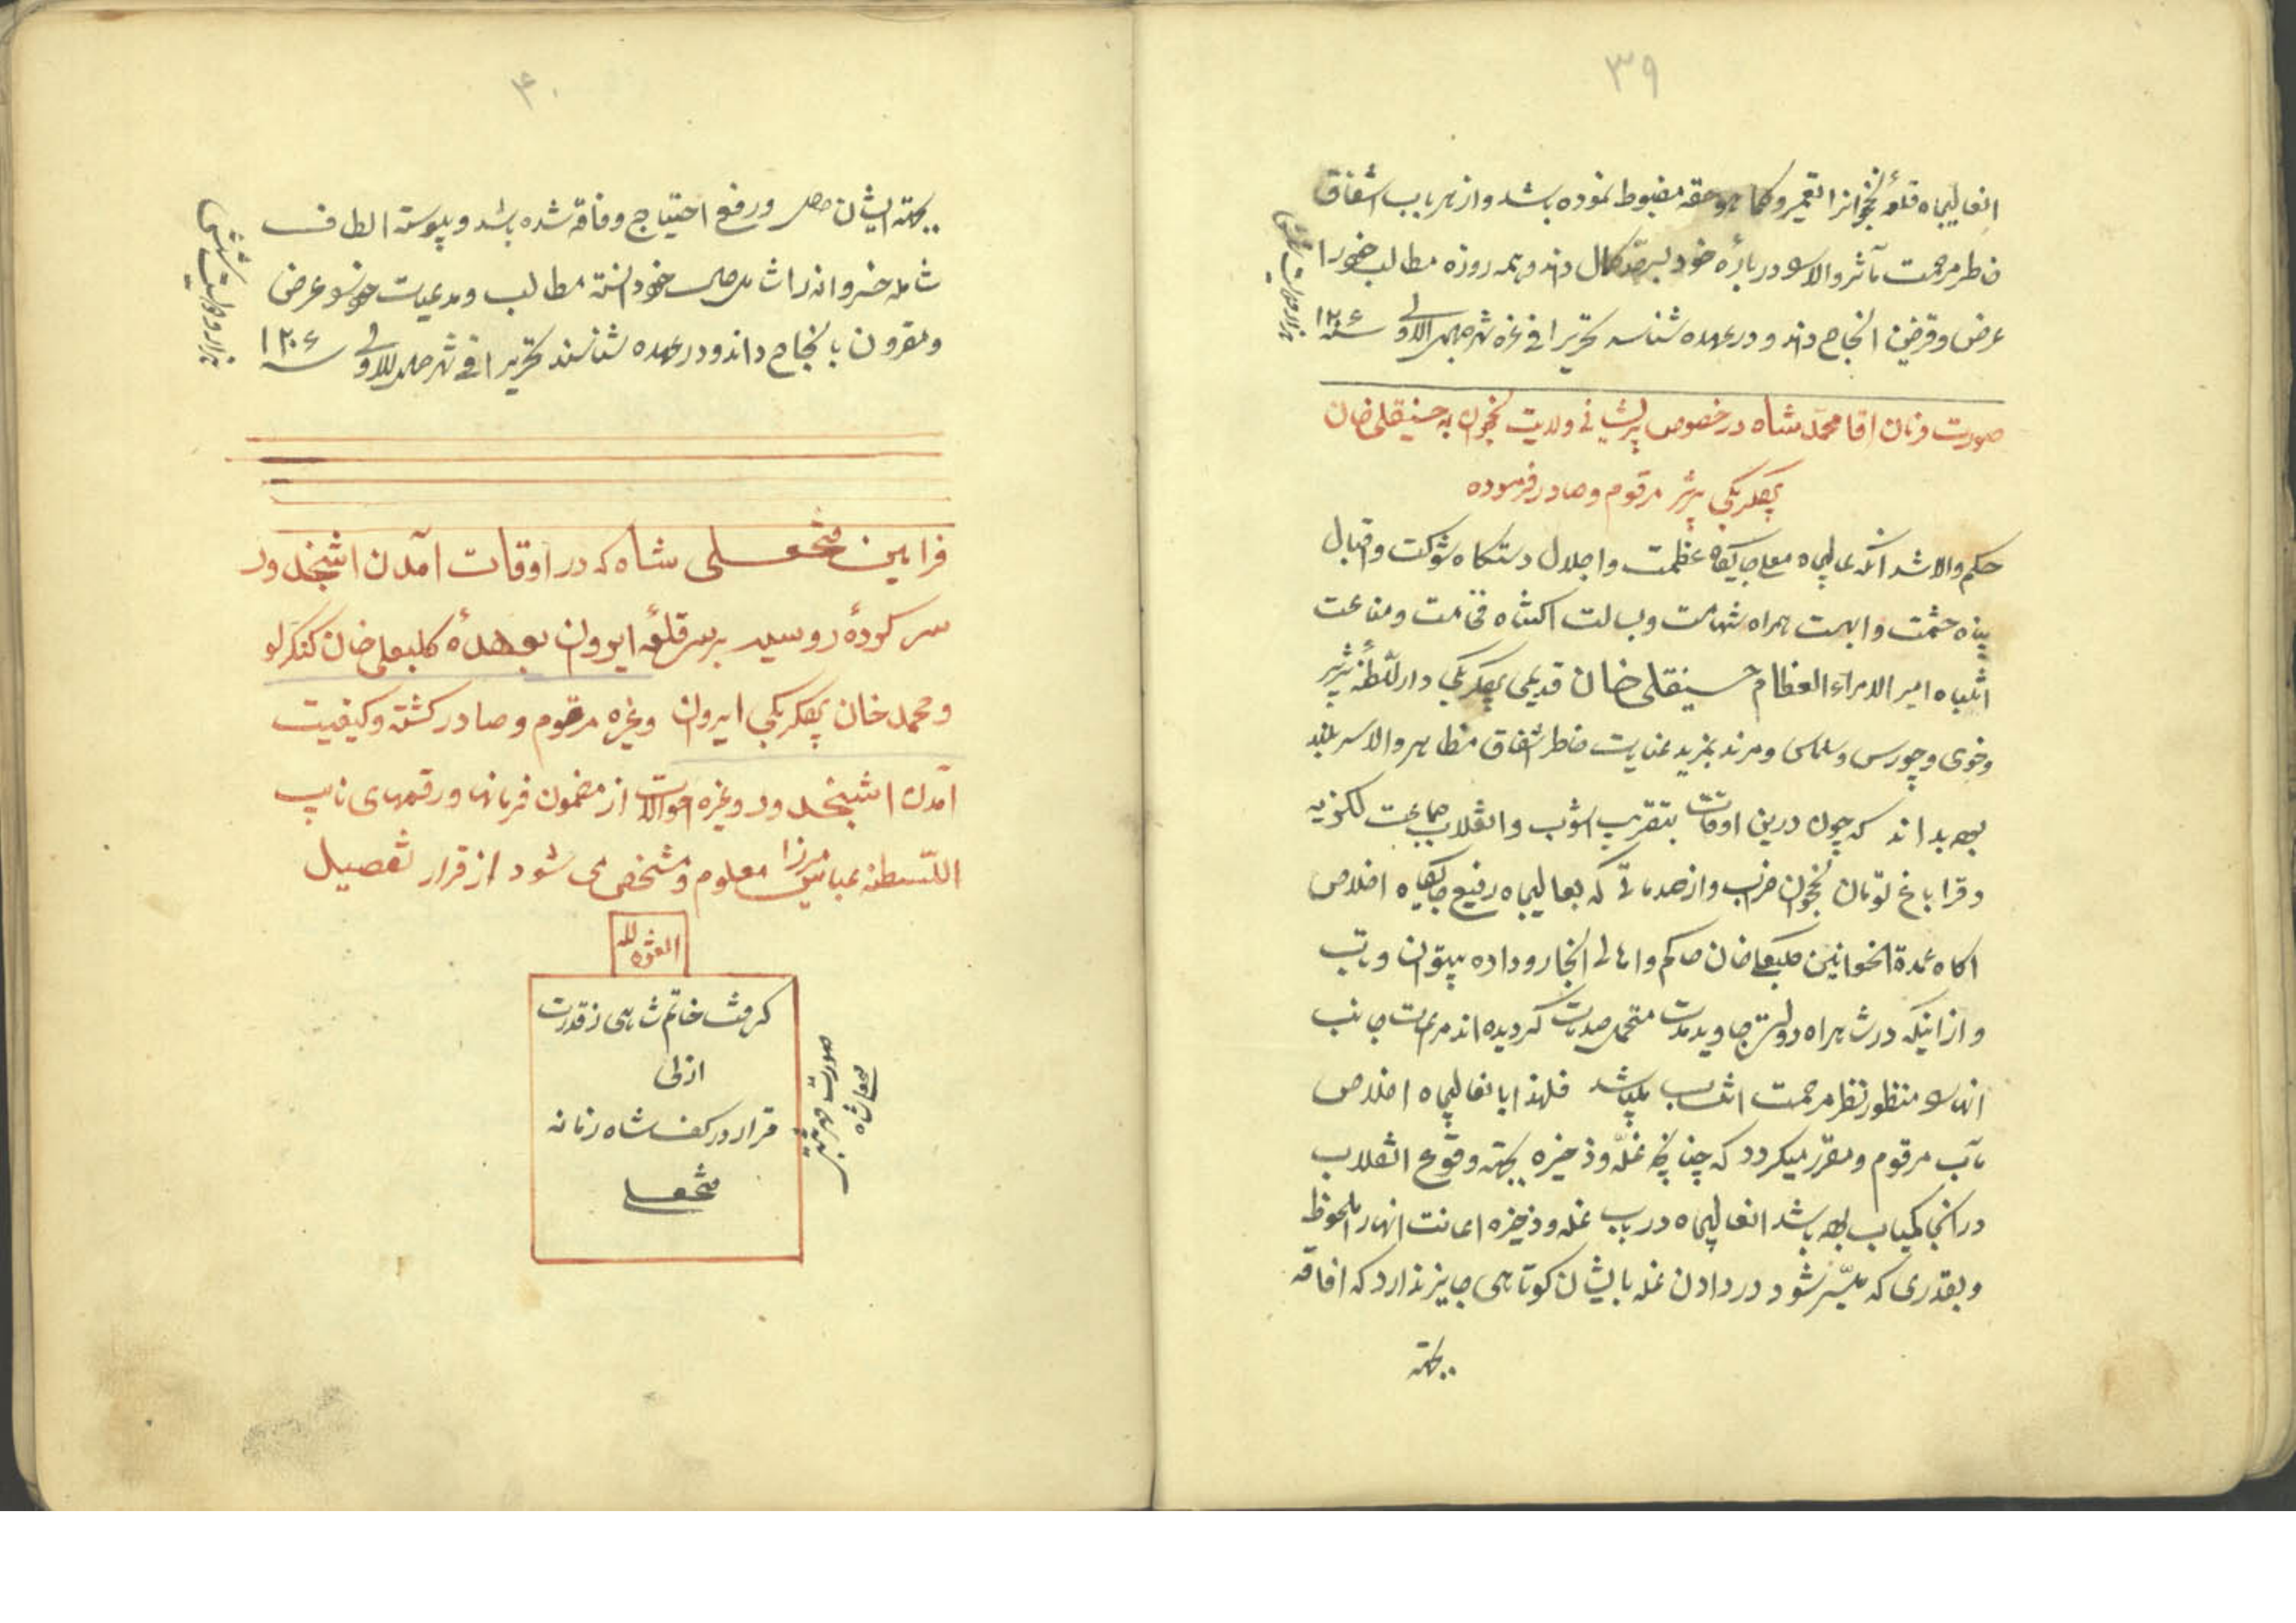 ۳۹
انعالیجاه قلعهٔ نخجوانرا تعمیر و کما هو حقه مضبوط نموده باشد و از هر باب اشفاق
خاطر مرحمت مآثر والا را در بارهٔ خود بسرحد کمال داند و همه روزه مطالب خود را
عرض و قرین انجاح داند و در عهده شناسد تحریرا فی غره شهر جمادی الاولی سنه ۱۲۰۶
صورت فرمان اقا محمد شاه در خصوص پریشانی ولایت نخجوان به حسینقلی خان
بیگلربیگی تبریز مرقوم و صادر فرموده
حکم والا شد آنکه عالیجاه معلی جایگاه عظمت و اجلال دستگاه شوکت و اقبال
پناه حشمت و ابهت همراه شهامت و بسالت اکتناه فخامت و مناعت
انتباه امیر الامراء العظام حسینقلی خان قدیمی بیگلربیگی دار السلطنهٔ تبریز
و خوی و چورس و سلماس و مرند بمزید عنایت خاطر اشفاق مظاهر والا سربلند
بوده بداند که چون درین اوقات بتقریب آشوب و انقلاب جماعت لکزیه
و قراباغ تومان نخجوان خراب و از صدماتی که بعالیجاه رفیع جایگاه اخلاص
اکاه عمدة الخوانین کلبعلی خان حاکم و اهالی انجا رو داده بیتوان و تاب
و از اینکه در شاهراه دولت جاوید مدت متحمل صدمات گردیده اند مراعات جانب
انها منظور نظر مرحمت انتساب میباشد فلهذا بانعالیجاه اخلاص
مآب مرقوم و مقرر میگردد که چنانچه غله و ذخیره بجهته وقوع انقلاب
در انجا کمیاب بوده باشد انعالیجاه در باب غله و ذخیره اعانت انها را ملحوظ
و بقدری که میسر شود در دادن غله بایشان کوتاهی جایز ندارد که افاقه
بجهته
۴۰
بجهته ایشان حاصل و رفع احتیاج و فاقه شده باشد و پیوسته الطاف
شامله خسروانه را شامل حال خود دانسته مطالب و مدعیات خود را عرض
و مقرون بانجاح داند و در عهده شناسند تحریرا فی شهر جمادی الاولی سنه ۱۲۰۶
فرامین فتحعلی شاه که در اوقات آمدن اشپخدور
سرکردهٔ روسیه بر سر قلعهٔ ایروان بعهدهٔ کلبعلی خان کنگرلو
و محمد خان بیگلربیگی ایروان و غیره مرقوم و صادر گشته و کیفیت
آمدن اشپخدور و غیره احوالات از مضمون فرمانها و رقمهای نایب
السلطنه عباس میرزا معلوم و مشخص می شود از قرار تفصیل
العزة لله
گرفت خاتم شاهی ز قدرت
ازلی
قرار در کف شاه زمانه
فتحعلی
صورت مهر
فتحعلی شاه